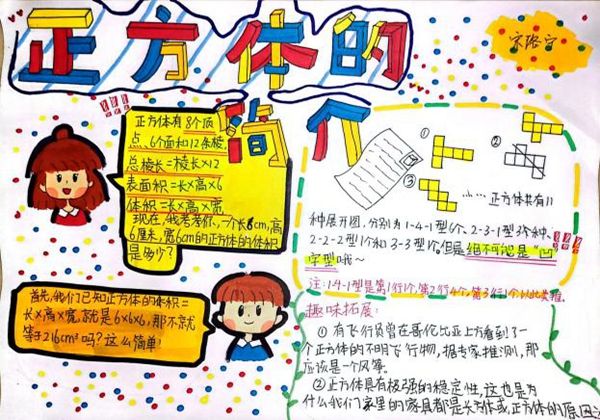 正方体的
简介
宋珞宁
正方体有8个顶
点、6个面和12条棱,
总棱长=棱长×12
表面积=长×高×6
体积=长×高×宽
现在,我考考你,一个长6cm,高
6厘米,宽6cm的正方体的体积
是多少?
首先,我们已知正方体的体积=
长×高×宽,就是6×6×6,那不就
等于216cm³吗?这么简单!
①
②
③
……正方体共有11
种展开图,分别为1-4-1型6个、2-3-1型3个、
2-2-2型1个和3-3型1个,但是绝不可能是“凹”
字型哦~
注:1-4-1型是第1行1个,第2行4个,第3行1个以此类推.
趣味拓展:
①有飞行员曾在哥伦比亚上方看到了一
个正方体的不明飞行物,据专家推测,那
应该是一个风筝。
②正方体具有极强的稳定性,这也是为
什么我们家里的家具都是长方体或正方体的原因